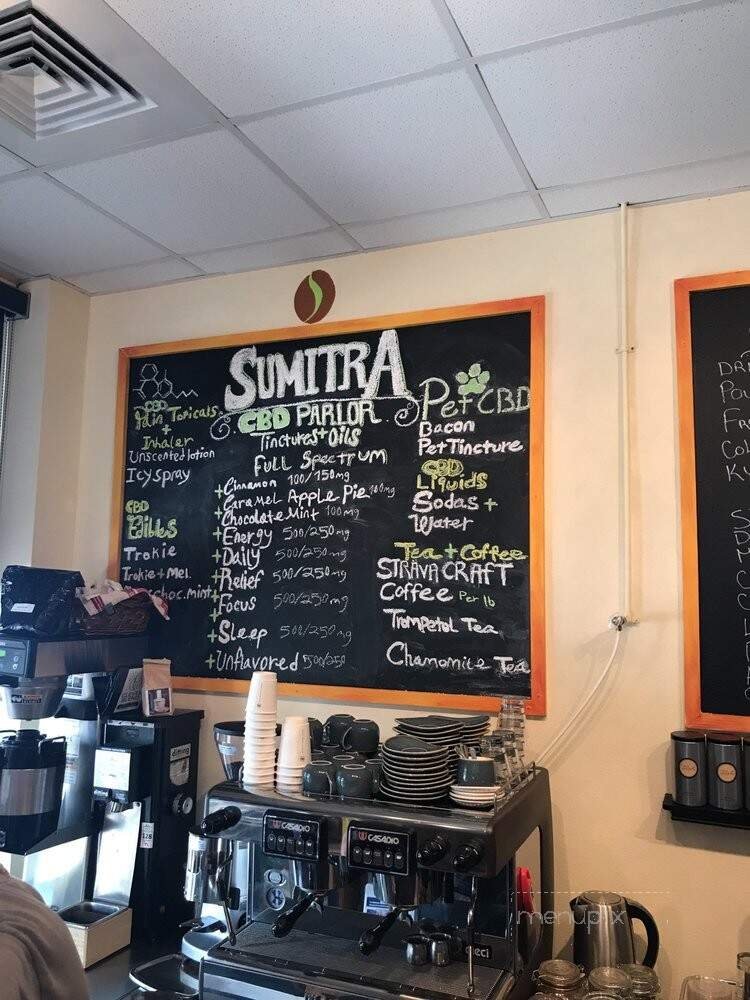 SUMITRA
CBD PARLOR
Tinctures + Oils
Full Spectrum
+ Cinnamon 100/750mg
+ Caramel Apple Pie 100mg
+ Chocolate Mint 100mg
+ Energy 500/250mg
+ Daily 500/250mg
+ Relief 500/250mg
+ Focus 500/250mg
+ Sleep 500/250mg
+ Unflavored 500/250
CBD
Pain Topicals
+
Inhaler
Unscented lotion
Icy spray
CBD
Edibles
Trokie
Trokie + Mel.
choc.mint
Pet CBD
Bacon
Pet Tincture
CBD
Liquids
Sodas +
Water
Tea + Coffee
STRAVA CRAFT
Coffee Per lb
Trompetol Tea
Chamomile Tea
CASADIO
CASADIO
dieci
menupix